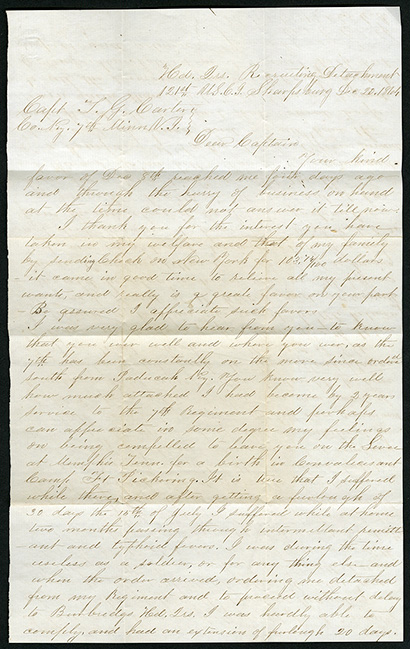 Hd. Qrs. Recruiting Detachment
121st U.S.C.I. Sharpsburg Dec 22, 1864
Capt. T. G. Carter
Co. K, 7th Minn. V. I.
Dear Captain
Your kind
favor of Dec 8th reached me four days ago
and through the hurry of business on hand
at the time could not answer it till now.
I thank you for the interest you have
taken in my welfare and that of my family
by sending Check on New York for 102 /100 dollars
it came in good time to relieve all my present
wants, and really is a great favor on your part
Be assured I appreciate such favors
I was very glad to hear from you to know
that you were well and where you were, as the
7th has been constantly on the move since ordered
south from Paducah Ky. You know very well
how much attached I had become by 2 years
service to the 7th Regiment and perhaps
can appreciate in some degree my feelings
on being compelled to leave you on the Levee
at Memphis Tenn. for a birth in Convalescent
Camp Ft Pickering. It is true that I suffered
while there, and after getting a furlough of
30 days the 10th of July I suffered while at home
two months passing through intermittent remitt
-ant and typhoid fevers. I was during the time
useless as a soldier, or for any thing else and
when the order arrived, ordering me detached
from my Regiment and to proceed without delay
to Burbridges Hd. Qrs. I was hardly able to
comply, and had an extension of furlough 20 days.